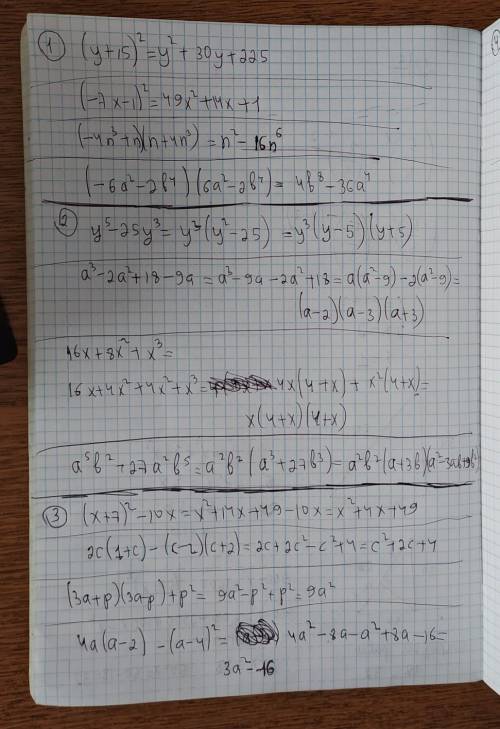 ① (y+15)² = y² + 30y + 225
(-7x-1)² = 49x² + 14x + 1
(-4n³+n)(n+4n³) = n² - 16n⁶
(-6a²-2b⁴)(6a²-2b⁴) = 4b⁸ - 36a⁴
② y⁵-25y³ = y³(y²-25) = y³(y-5)(y+5)
a³-2a²+18-9a = a³-9a-2a²+18 = a(a²-9)-2(a²-9) =
(a-2)(a-3)(a+3)
16x+8x²+x³ =
16x+4x²+4x²+x³ = 4x(4+x) + x²(4+x) =
x(4+x)(4+x)
a⁵b²+27a²b⁵ = a²b²(a³+27b³) = a²b²(a+3b)(a²-3ab+9b²)
③ (x+7)²-10x = x²+14x+49-10x = x²+4x+49
2c(1+c)-(c-2)(c+2) = 2c+2c²-c²+4 = c²+2c+4
(3a+p)(3a-p)+p² = 9a²-p²+p² = 9a²
4a(a-2) - (a-4)² = 4a²-8a-a²+8a-16 =
3a²-16